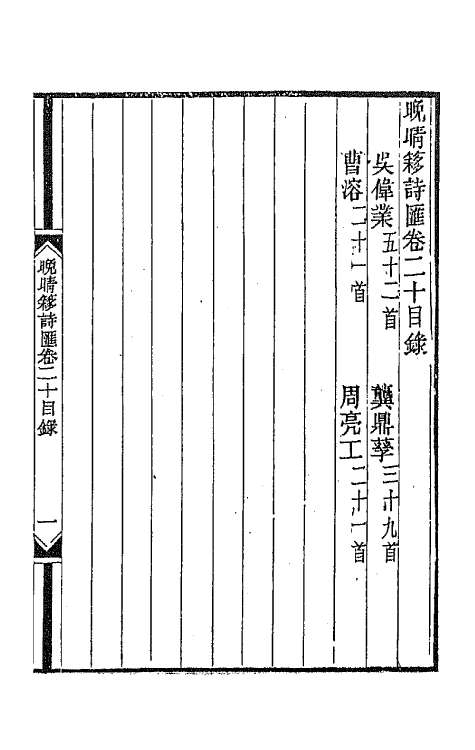 晚晴簃詩匯卷二十目錄
吳偉業五十二首　龔鼎孳三十九首
曹溶二十一首　周亮工二十一首
晚晴簃詩匯卷二十目錄　一